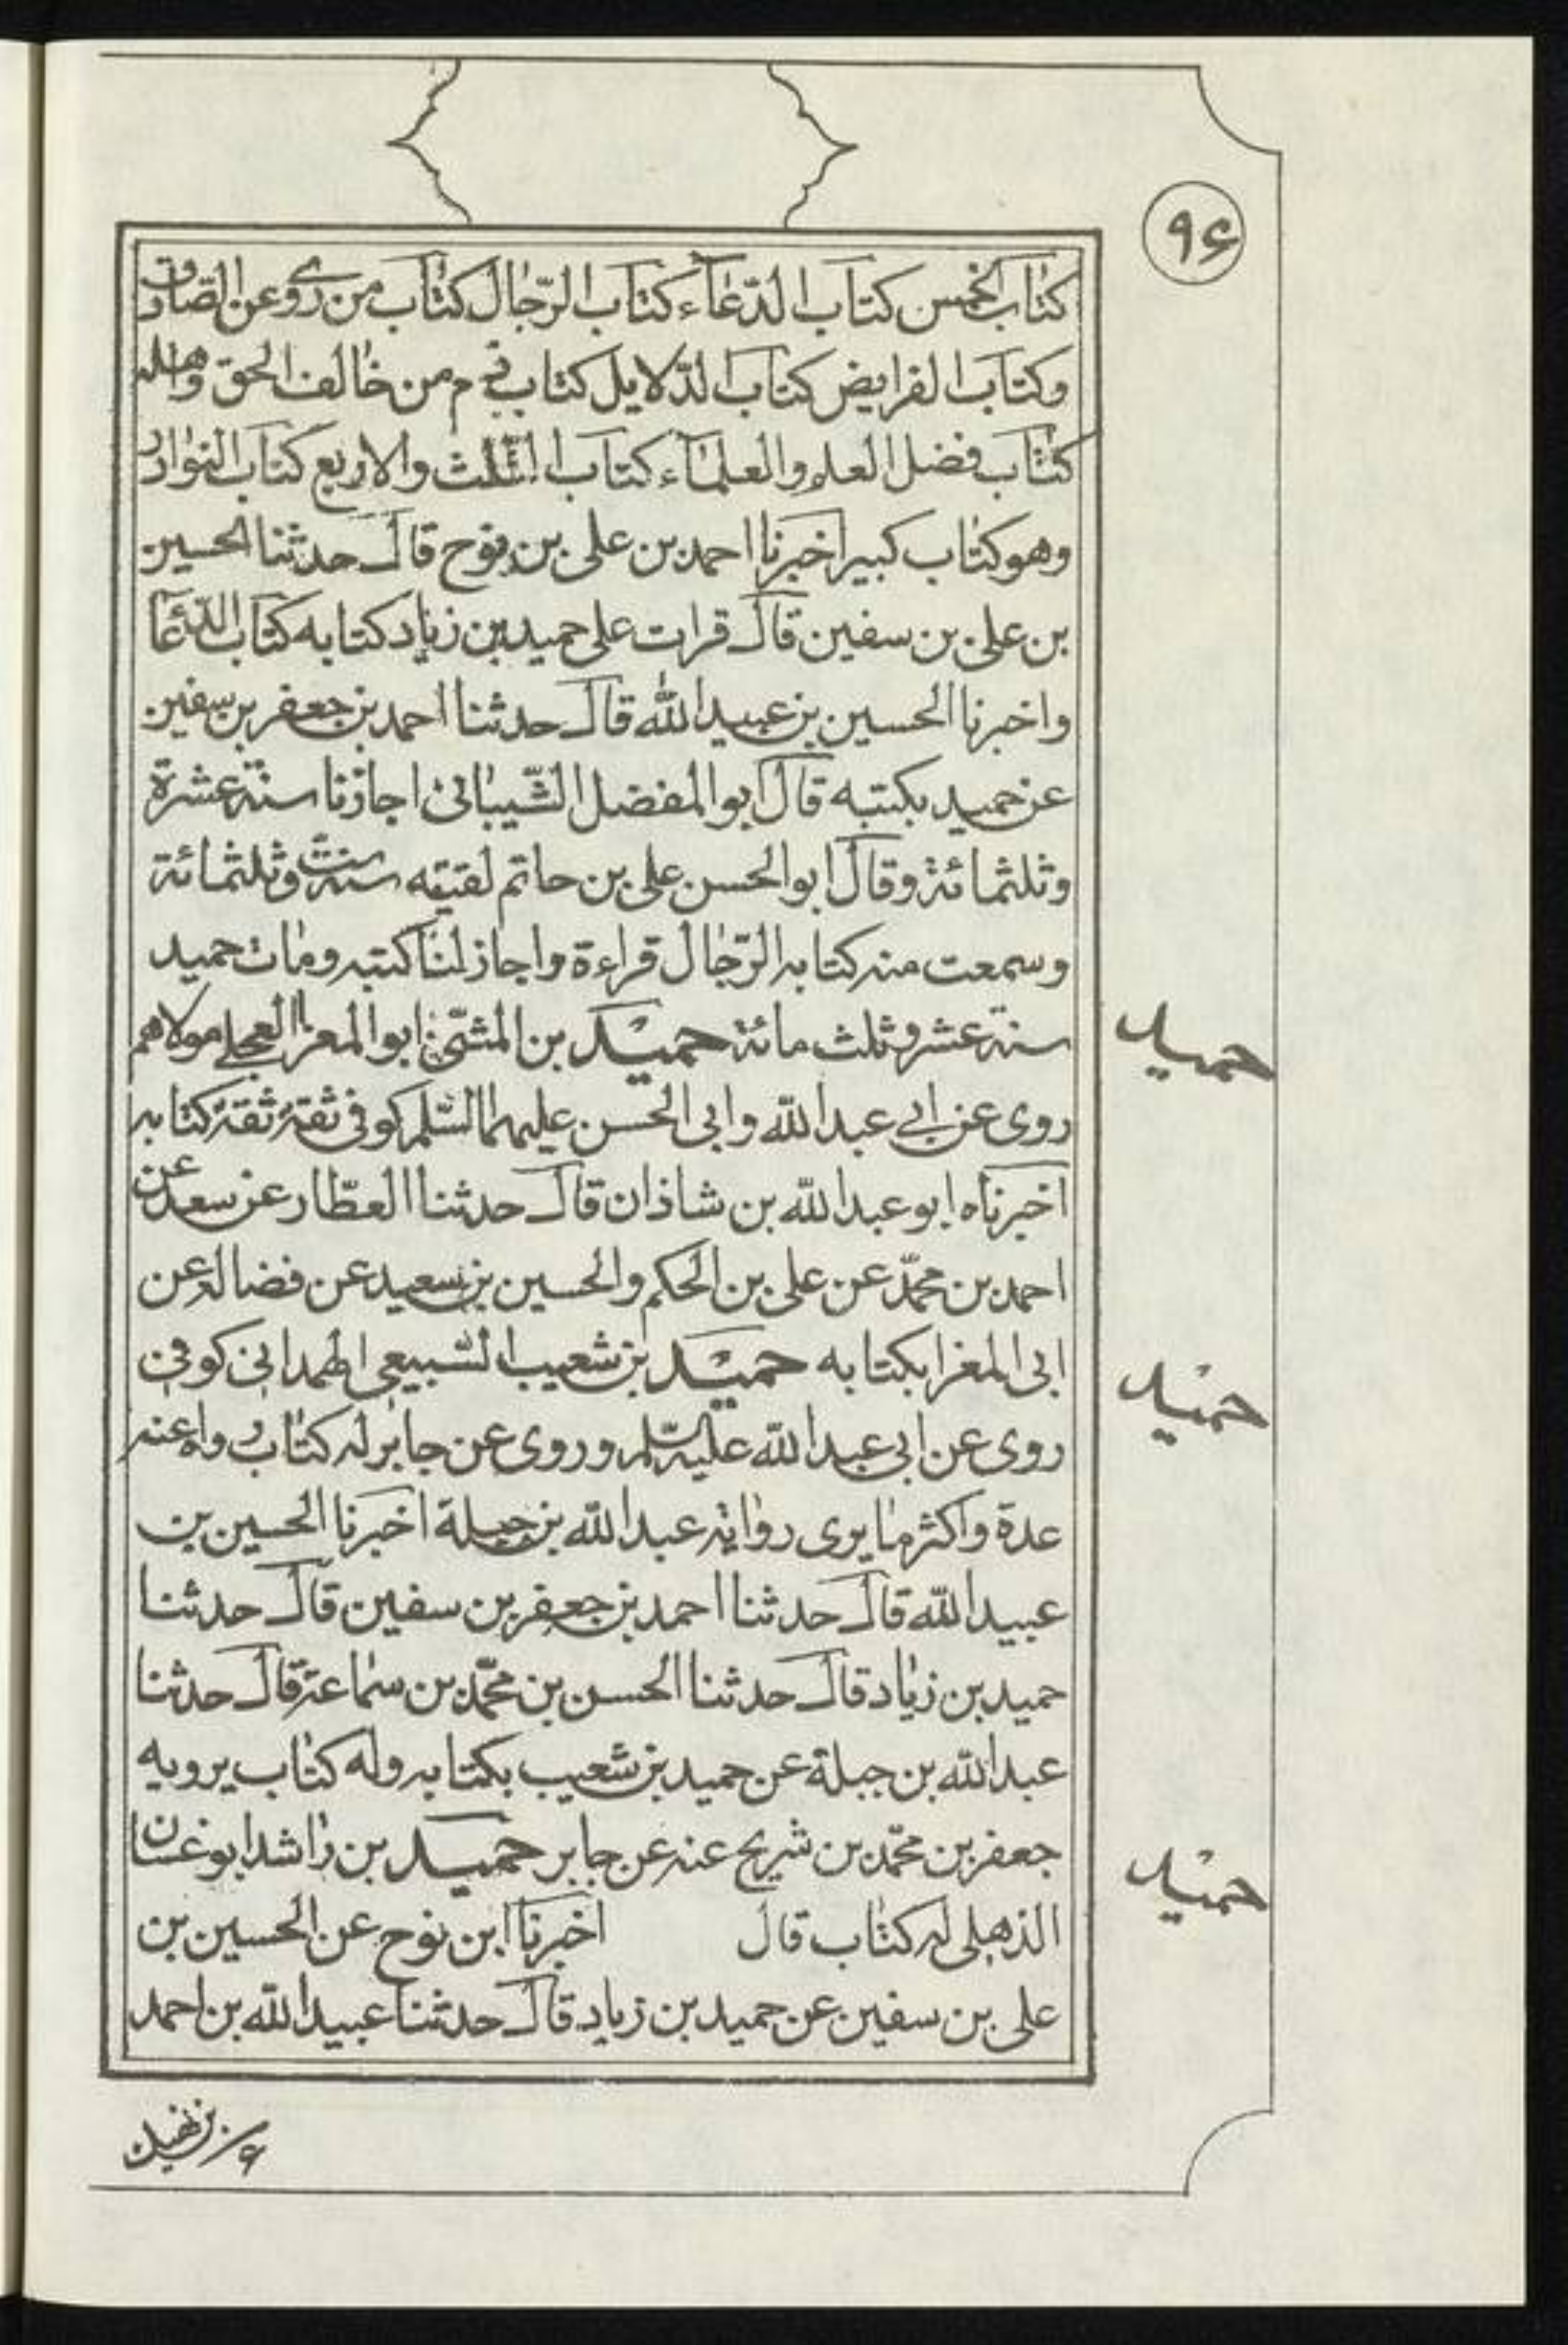 ۹۶
كتاب الخمس كتاب الدّعآء كتاب الرّجال كتاب من روى عن الصادق
وكتاب الفرايض كتاب الدّلايل كتاب ذم من خالف الحق واهله
كتاب فضل العلم والعلمآء كتاب الثّلث والاربع كتاب النوادر
وهو كتاب كبير اخبرنا احمد بن على بن نوح قال حدثنا الحسين
بن على بن سفين قال قرات على حميد بن زياد كتابه كتاب الدّعا
واخبرنا الحسين بن عبيد الله قال حدثنا احمد بن جعفر بن سفين
عن حميد بكتبه قال ابو المفضل الشّيبانى اجازنا سنة عشرة
وثلثمائة وقال ابو الحسن على بن حاتم لقيته سنة ستّ وثلثمائة
وسمعت منه كتابه الرّجال قراءة واجاز لنا كتبه ومات حميد
سنة عشر وثلث مائة حميد بن المثنّى ابو المغرا العجلى مولاهم
روى عن ابى عبد الله وابى الحسن عليهما السّلم كوفى ثقة ثقة كتابه
اخبرناه ابو عبد الله بن شاذان قال حدثنا العطّار عن سعد عن
احمد بن محمّد عن على بن الحكم والحسين بن سعيد عن فضالة عن
ابى المغرا بكتابه حميد بن شعيب السبيعى الهمدانى كوفى
روى عن ابى عبد الله عليه السّلم وروى عن جابر له كتاب رواه عنه
عدة واكثر ما يروى رواية عبد الله بن جبلة اخبرنا الحسين بن
عبيد الله قال حدثنا احمد بن جعفر بن سفين قال حدثنا
حميد بن زياد قال حدثنا الحسن بن محمّد بن سماعة قال حدثنا
عبد الله بن جبلة عن حميد بن شعيب بكتابه وله كتاب يرويه
جعفر بن محمّد بن شريح عنه عن جابر حميد بن راشد ابو غسان
الذهلى له كتاب قال اخبرنا ابن نوح عن الحسين بن
على بن سفين عن حميد بن زياد قال حدثنا عبيد الله بن احمد
حميد
حميد
حميد
بن نهيك